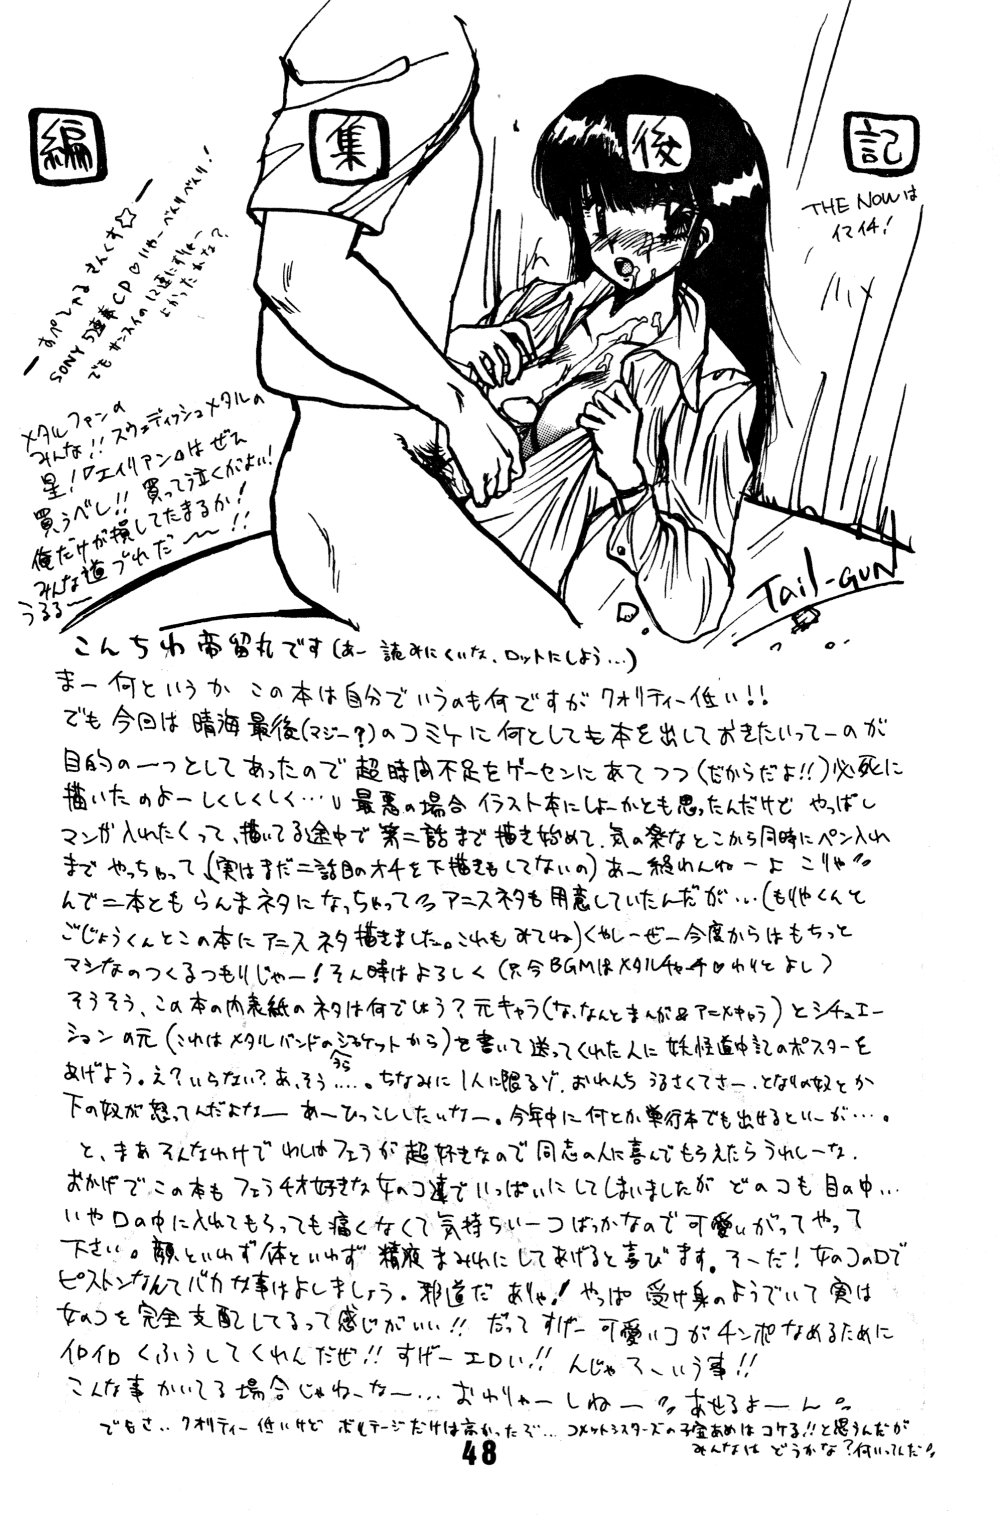 編集後記
THE NOWは
イマイチ!
ーすぺしゃるさんくす☆ー
SONY5連奏CD♡いやーべんりべんり!
でもサンスイの12連にすりゃー
よかったかな?
メタルファンの
みんな!!スウェディッシュメタルの
星!『エイリアン』はぜひ
買うべし!!買って泣くがよい!
俺だけが損してたまるか!
みんな道づれだ〜〜!!
うるる〜
Tail-GUN
こんちわ帝留丸です(あー読みにくいな、ロットにしよう…)
まー何というかこの本は自分でいうのも何ですがクオリティー低い!!
でも今回は晴海最後(マジー?)のコミケに何としても本を出しておきたいってーのが
目的の一つとしてあったので超時間不足をゲーセンにあてつつ(だからだよ!!)必死に
描いたのよーしくしくしく…最悪の場合イラスト本にしよーかとも思ったんだけどやっぱし
マンガ入れたくって、描いてる途中で第二話まで描き始めて、気の楽なとこから同時にペン入れ
までやっちゃって、(実はまだ二話目のオチを下描きもしてないの)あ〜終わんねーよこりゃ
んで二本ともらんまネタになっちゃってアニスネタも用意していたんだが…(もりやくんと
ごじょうくんとこの本にアニスネタ描きました。これもみてね)くやしーぜー今度からはもちっと
マシなのつくるつもりじゃー!そん時はよろしく(只今BGMはメタルチャーチ♡わりとよし)
そうそう、この本の内表紙のネタは何でしょう?元キャラ(な、なんとまんが&アニメキャラ)とシチュエー
ションの元(これはメタルバンドのジャケットうらから)を書いて送ってくれた人に妖怪道中記のポスターを
あげよう。え?いらない?あ、そう……。ちなみに1人に限るゾ。おれんちうるさくてさー、となりの奴とか
下の奴が怒ってんだよなーあーひっこししたいなー。今年中に何とか単行本でも出せるといーが…。
と、まあそんなわけでわしはフェラが超好きなので同志の人に喜んでもらえたらうれしーな。
おかげでこの本もフェラチオ好きな女のコ達でいっぱいにしてしまいましたがどのコも目の中…
いや口の中に入れてもらっても痛くなくて気持ちいーコばっかなので可愛いがってやって
下さい。顔といわず体といわず精液まみれにしてあげると喜びます。そーだ!女のコの口で
ピストンなんてバカな事はよしましょう。邪道だありゃ!やっぱ受け身のようでいて実は
女のコを完全支配してるって感じがいい!!だってすげー可愛いコがチンポなめるために
イロイロくふうしてくれんだぜ!!すげーエロい!!んじゃそーいう事!!
こんな事かいてる場合じゃねーなー…おわりゃーしねーあせるよーん
でもさ‥クオリティー低いけどボルテージだけは高かったぞ…コメットシスターズの子宝あめはコケる!!と思うんだが
みんなはどうかな?何いってんだ
48